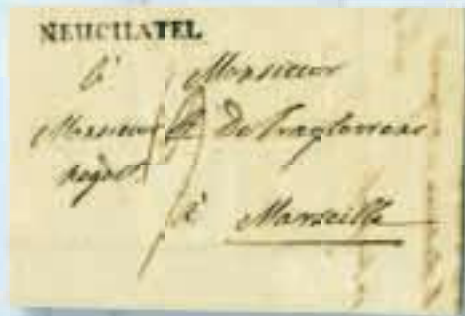 NEUCHATEL
à Monsieur
Monsieur
negot.
à Marseille